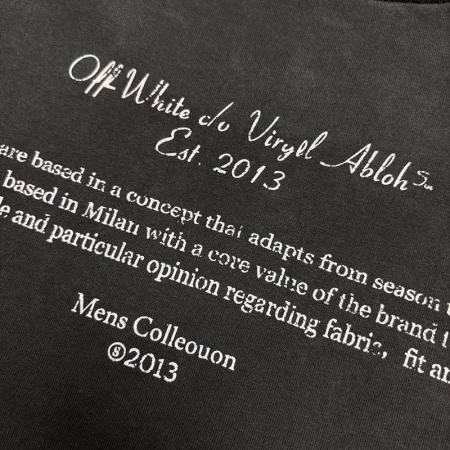 Off White c/o Virgel Abloh S
Est. 2013
are based in a concept that adapts from season
based in Milan with a core value of the brand t
le and particular opinion regarding fabric, fit an
Mens Colleouon
Ⓢ2013